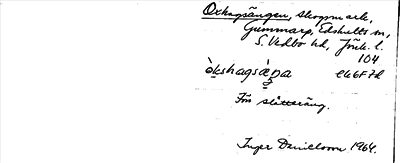 Oxhagsängen, skogsmark,
Gummarp, Edshults sn,
S. Vedbo hd, Jönk. l.
104
òkshagsæ̀ŋa ek6F7d
Förr slåtteräng.
Inger Danielsson 1964.